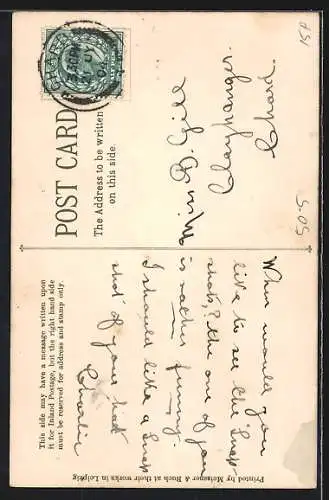 POST CARD
The Address to be written
on this side.
CHARD
Miss B. Gill
Claypanger.
Chard.
15P
S.O.S
This side may have a message written upon
it for Inland Postage, but the right hand side
must be reserved for address and stamp only.
When would you
like to see the Snap
shots, the one of you
is rather funny.
I should like a Snap
shot of your hat
Charlie
Printed by Meissner & Buch at their works in Leipzig